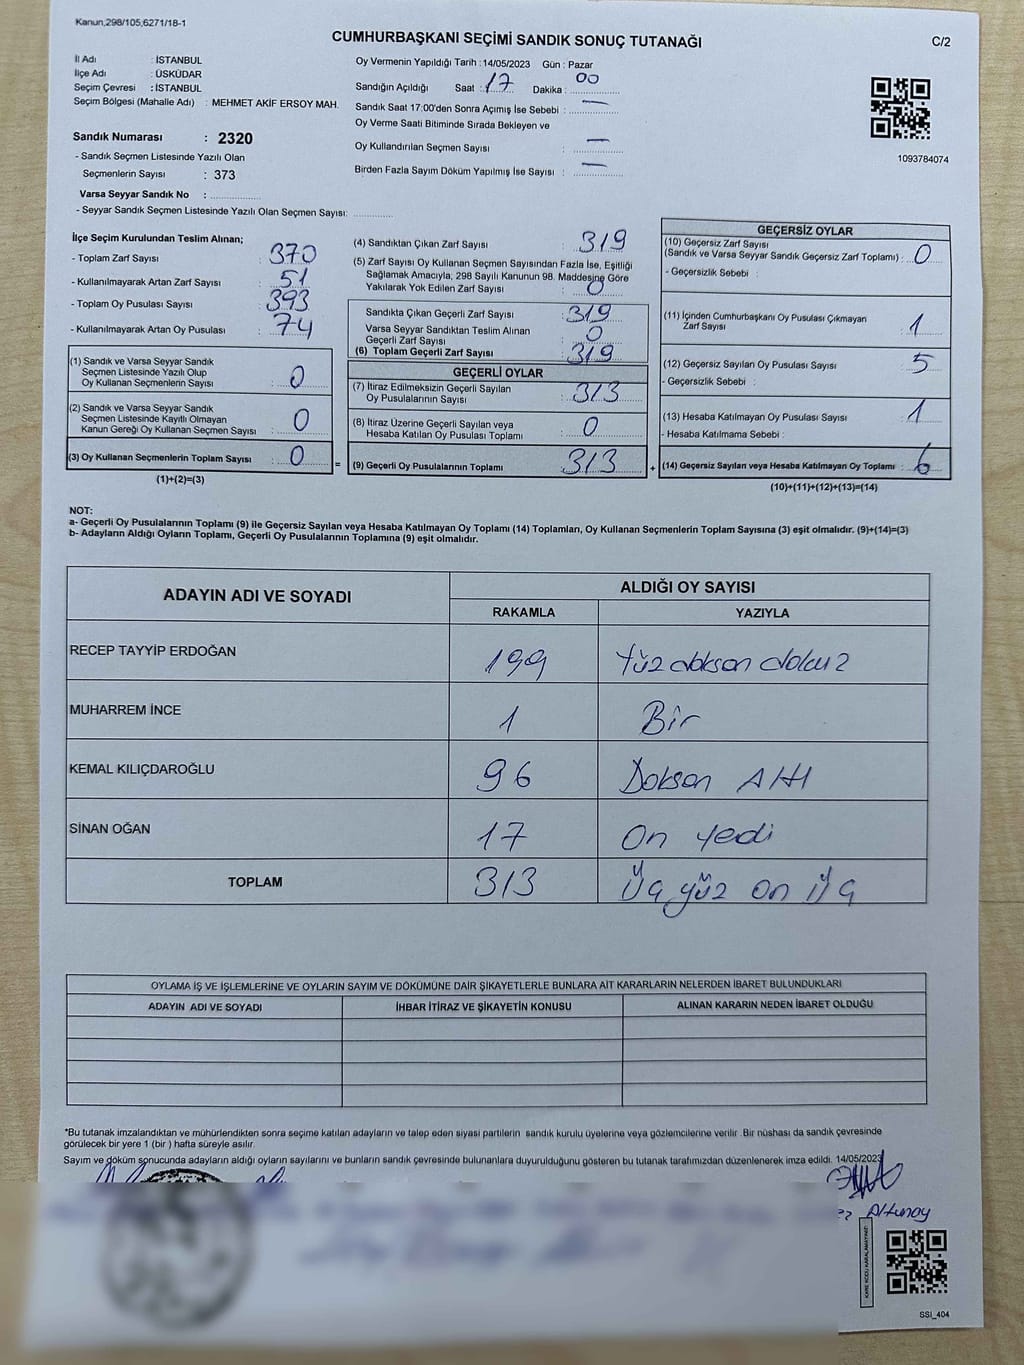 Kanun,298/105,6271/18-1
CUMHURBAŞKANI SEÇİMİ SANDIK SONUÇ TUTANAĞI
C/2
İl Adı : İSTANBUL
İlçe Adı : ÜSKÜDAR
Seçim Çevresi : İSTANBUL
Seçim Bölgesi (Mahalle Adı) : MEHMET AKİF ERSOY MAH.
Sandık Numarası : 2320
- Sandık Seçmen Listesinde Yazılı Olan
Seçmenlerin Sayısı : 373
Varsa Seyyar Sandık No : ....................
- Seyyar Sandık Seçmen Listesinde Yazılı Olan Seçmen Sayısı: ..............
Oy Vermenin Yapıldığı Tarih : 14/05/2023 Gün : Pazar
Sandığın Açıldığı Saat : 17 Dakika : 00
Sandık Saat 17:00'den Sonra Açımış İse Sebebi : —
Oy Verme Saati Bitiminde Sırada Bekleyen ve
Oy Kullandırılan Seçmen Sayısı : —
Birden Fazla Sayım Döküm Yapılmış İse Sayısı : —
1093784074
İlçe Seçim Kurulundan Teslim Alınan;
- Toplam Zarf Sayısı : 370
- Kullanılmayarak Artan Zarf Sayısı : 51
- Toplam Oy Pusulası Sayısı : 393
- Kullanılmayarak Artan Oy Pusulası : 74
(1) Sandık ve Varsa Seyyar Sandık
Seçmen Listesinde Yazılı Olup
Oy Kullanan Seçmenlerin Sayısı : 0
(2) Sandık ve Varsa Seyyar Sandık
Seçmen Listesinde Kayıtlı Olmayan
Kanun Gereği Oy Kullanan Seçmen Sayısı : 0
(3) Oy Kullanan Seçmenlerin Toplam Sayısı : 0
(1)+(2)=(3)
=
(4) Sandıktan Çıkan Zarf Sayısı : 319
(5) Zarf Sayısı Oy Kullanan Seçmen Sayısından Fazla İse, Eşitliği
Sağlamak Amacıyla, 298 Sayılı Kanunun 98. Maddesine Göre
Yakılarak Yok Edilen Zarf Sayısı : 0
Sandıkta Çıkan Geçerli Zarf Sayısı : 319
Varsa Seyyar Sandıktan Teslim Alınan
Geçerli Zarf Sayısı : 0
(6) Toplam Geçerli Zarf Sayısı : 319
GEÇERLİ OYLAR
(7) İtiraz Edilmeksizin Geçerli Sayılan
Oy Pusulalarının Sayısı : 313
(8) İtiraz Üzerine Geçerli Sayılan veya
Hesaba Katılan Oy Pusulası Toplamı : 0
(9) Geçerli Oy Pusulalarının Toplamı : 313
+
GEÇERSİZ OYLAR
(10) Geçersiz Zarf Sayısı
(Sandık ve Varsa Seyyar Sandık Geçersiz Zarf Toplamı) : 0
- Geçersizlik Sebebi :
(11) İçinden Cumhurbaşkanı Oy Pusulası Çıkmayan
Zarf Sayısı : 1
(12) Geçersiz Sayılan Oy Pusulası Sayısı : 5
- Geçersizlik Sebebi :
(13) Hesaba Katılmayan Oy Pusulası Sayısı : 1
- Hesaba Katılmama Sebebi :
(14) Geçersiz Sayılan veya Hesaba Katılmayan Oy Toplamı : 6
(10)+(11)+(12)+(13)=(14)
NOT:
a- Geçerli Oy Pusulalarının Toplamı (9) ile Geçersiz Sayılan veya Hesaba Katılmayan Oy Toplamı (14) Toplamları, Oy Kullanan Seçmenlerin Toplam Sayısına (3) eşit olmalıdır. (9)+(14)=(3)
b- Adayların Aldığı Oyların Toplamı, Geçerli Oy Pusulalarının Toplamına (9) eşit olmalıdır.
ADAYIN ADI VE SOYADI
ALDIĞI OY SAYISI
RAKAMLA YAZIYLA
RECEP TAYYİP ERDOĞAN 199 Yüz doksan dokuz
MUHARREM İNCE 1 Bir
KEMAL KILIÇDAROĞLU 96 Doksan Altı
SİNAN OĞAN 17 On yedi
TOPLAM 313 Üç yüz on üç
OYLAMA İŞ VE İŞLEMLERİNE VE OYLARIN SAYIM VE DÖKÜMÜNE DAİR ŞİKAYETLERLE BUNLARA AİT KARARLARIN NELERDEN İBARET BULUNDUKLARI
ADAYIN ADI VE SOYADI İHBAR İTİRAZ VE ŞİKAYETİN KONUSU ALINAN KARARIN NEDEN İBARET OLDUĞU
*Bu tutanak imzalandıktan ve mühürlendikten sonra seçime katılan adayların ve talep eden siyasi partilerin sandık kurulu üyelerine veya gözlemcilerine verilir. Bir nüshası da sandık çevresinde
görülecek bir yere 1 (bir ) hafta süreyle asılır.
Sayım ve döküm sonucunda adayların aldığı oyların sayılarını ve bunların sandık çevresinde bulunanlara duyurulduğunu gösteren bu tutanak tarafımızdan düzenlenerek imza edildi. 14/05/2023
Altunay
SSI_404